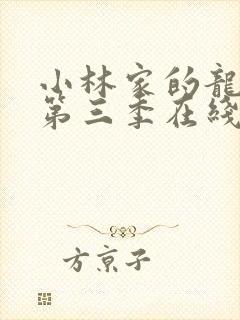 小林家的龍
第三季在綫
方京子